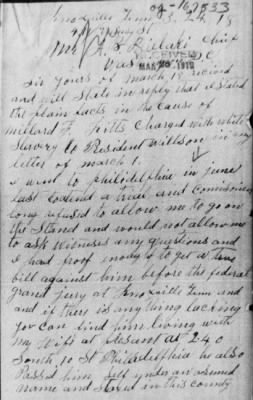 09-16783
Knoxville Tenn 3, 24, 18
Mr. A. B. Bielaski Chief
RECEIVED
MAR 26 1918
Sir Yours of march 18 recived
and will State in reply that I stated
the plain facts in the cause of
Millard F. Fitts Charged with white
Slavery to President Willson in my
letter of march 1.
I went to philidelphia in june
last to attend a trial and Commissioner
Long refused to allow me to go on
the Stand and would not allow me
to ask witnesses any questions and
I had proof ready to get a true
bill against him before the federal
grand Jury at Knoxville Tenn and
and if there is any thing lacking
you Can find him living with
my Wife at plesent at 240
South 10 St Philadelphia he also
Passed him self under an asumed
name and Stayed in this county